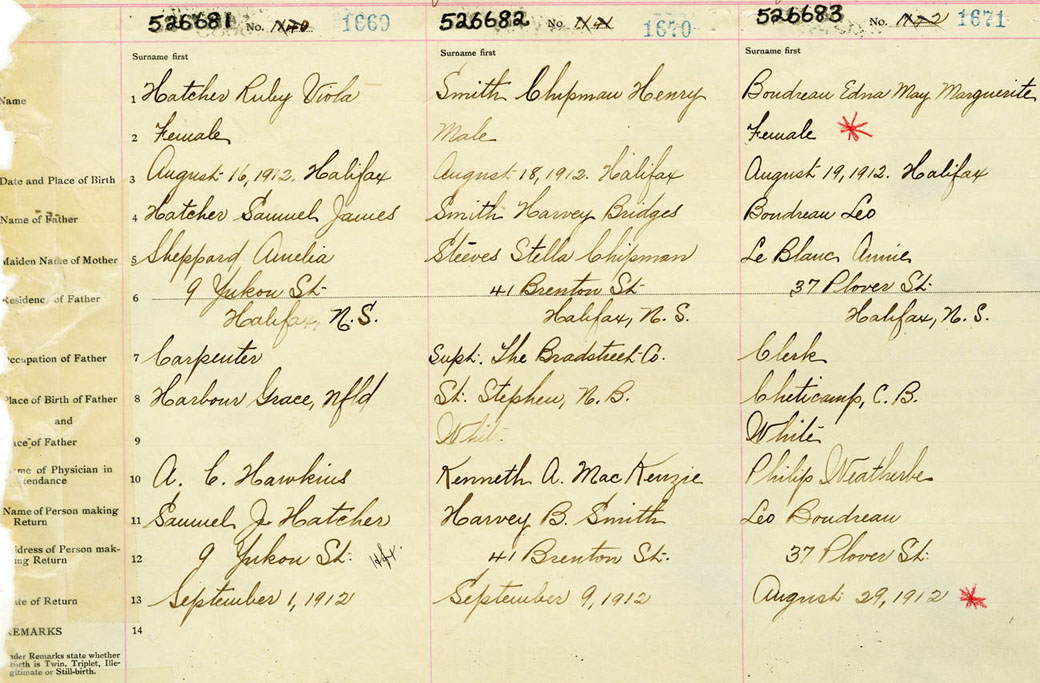 526681 No. 1669 526682 No. 1670 526683 No. 1671
Surname first Surname first Surname first
Name 1 Hatcher Ruby Viola Smith Chipman Henry Boudreau Edna May Marguerite
2 Female Male Female
Date and Place of Birth 3 August 16, 1912. Halifax August 18, 1912. Halifax August 19, 1912. Halifax
Name of Father 4 Hatcher Samuel James Smith Harvey Bridges Boudreau Leo
Maiden Name of Mother 5 Sheppard Amelia Steeves Stella Chipman Le Blanc Annie
Residence of Father 6 9 Yukon St. 41 Brenton St. 37 Plover St.
Halifax, N.S. Halifax, N.S. Halifax, N.S.
Occupation of Father 7 Carpenter Supt. The Bradstreet Co. Clerk
Place of Birth of Father 8 Harbour Grace, Nfld St. Stephen, N.B. Cheticamp, C.B.
and
ace of Father 9 White White
me of Physician in
tendance 10 A. C. Hawkins Kenneth A. MacKenzie Philip Weatherbe
Name of Person making
Return 11 Samuel J. Hatcher Harvey B. Smith Leo Boudreau
ddress of Person mak-
ing Return 12 9 Yukon St. Hfx. 41 Brenton St. 37 Plover St.
ate of Return 13 September 1, 1912 September 9, 1912 August 29, 1912
REMARKS 14
nder Remarks state whether
birth is Twin, Triplet, Ille-
gitimate or Still-birth.